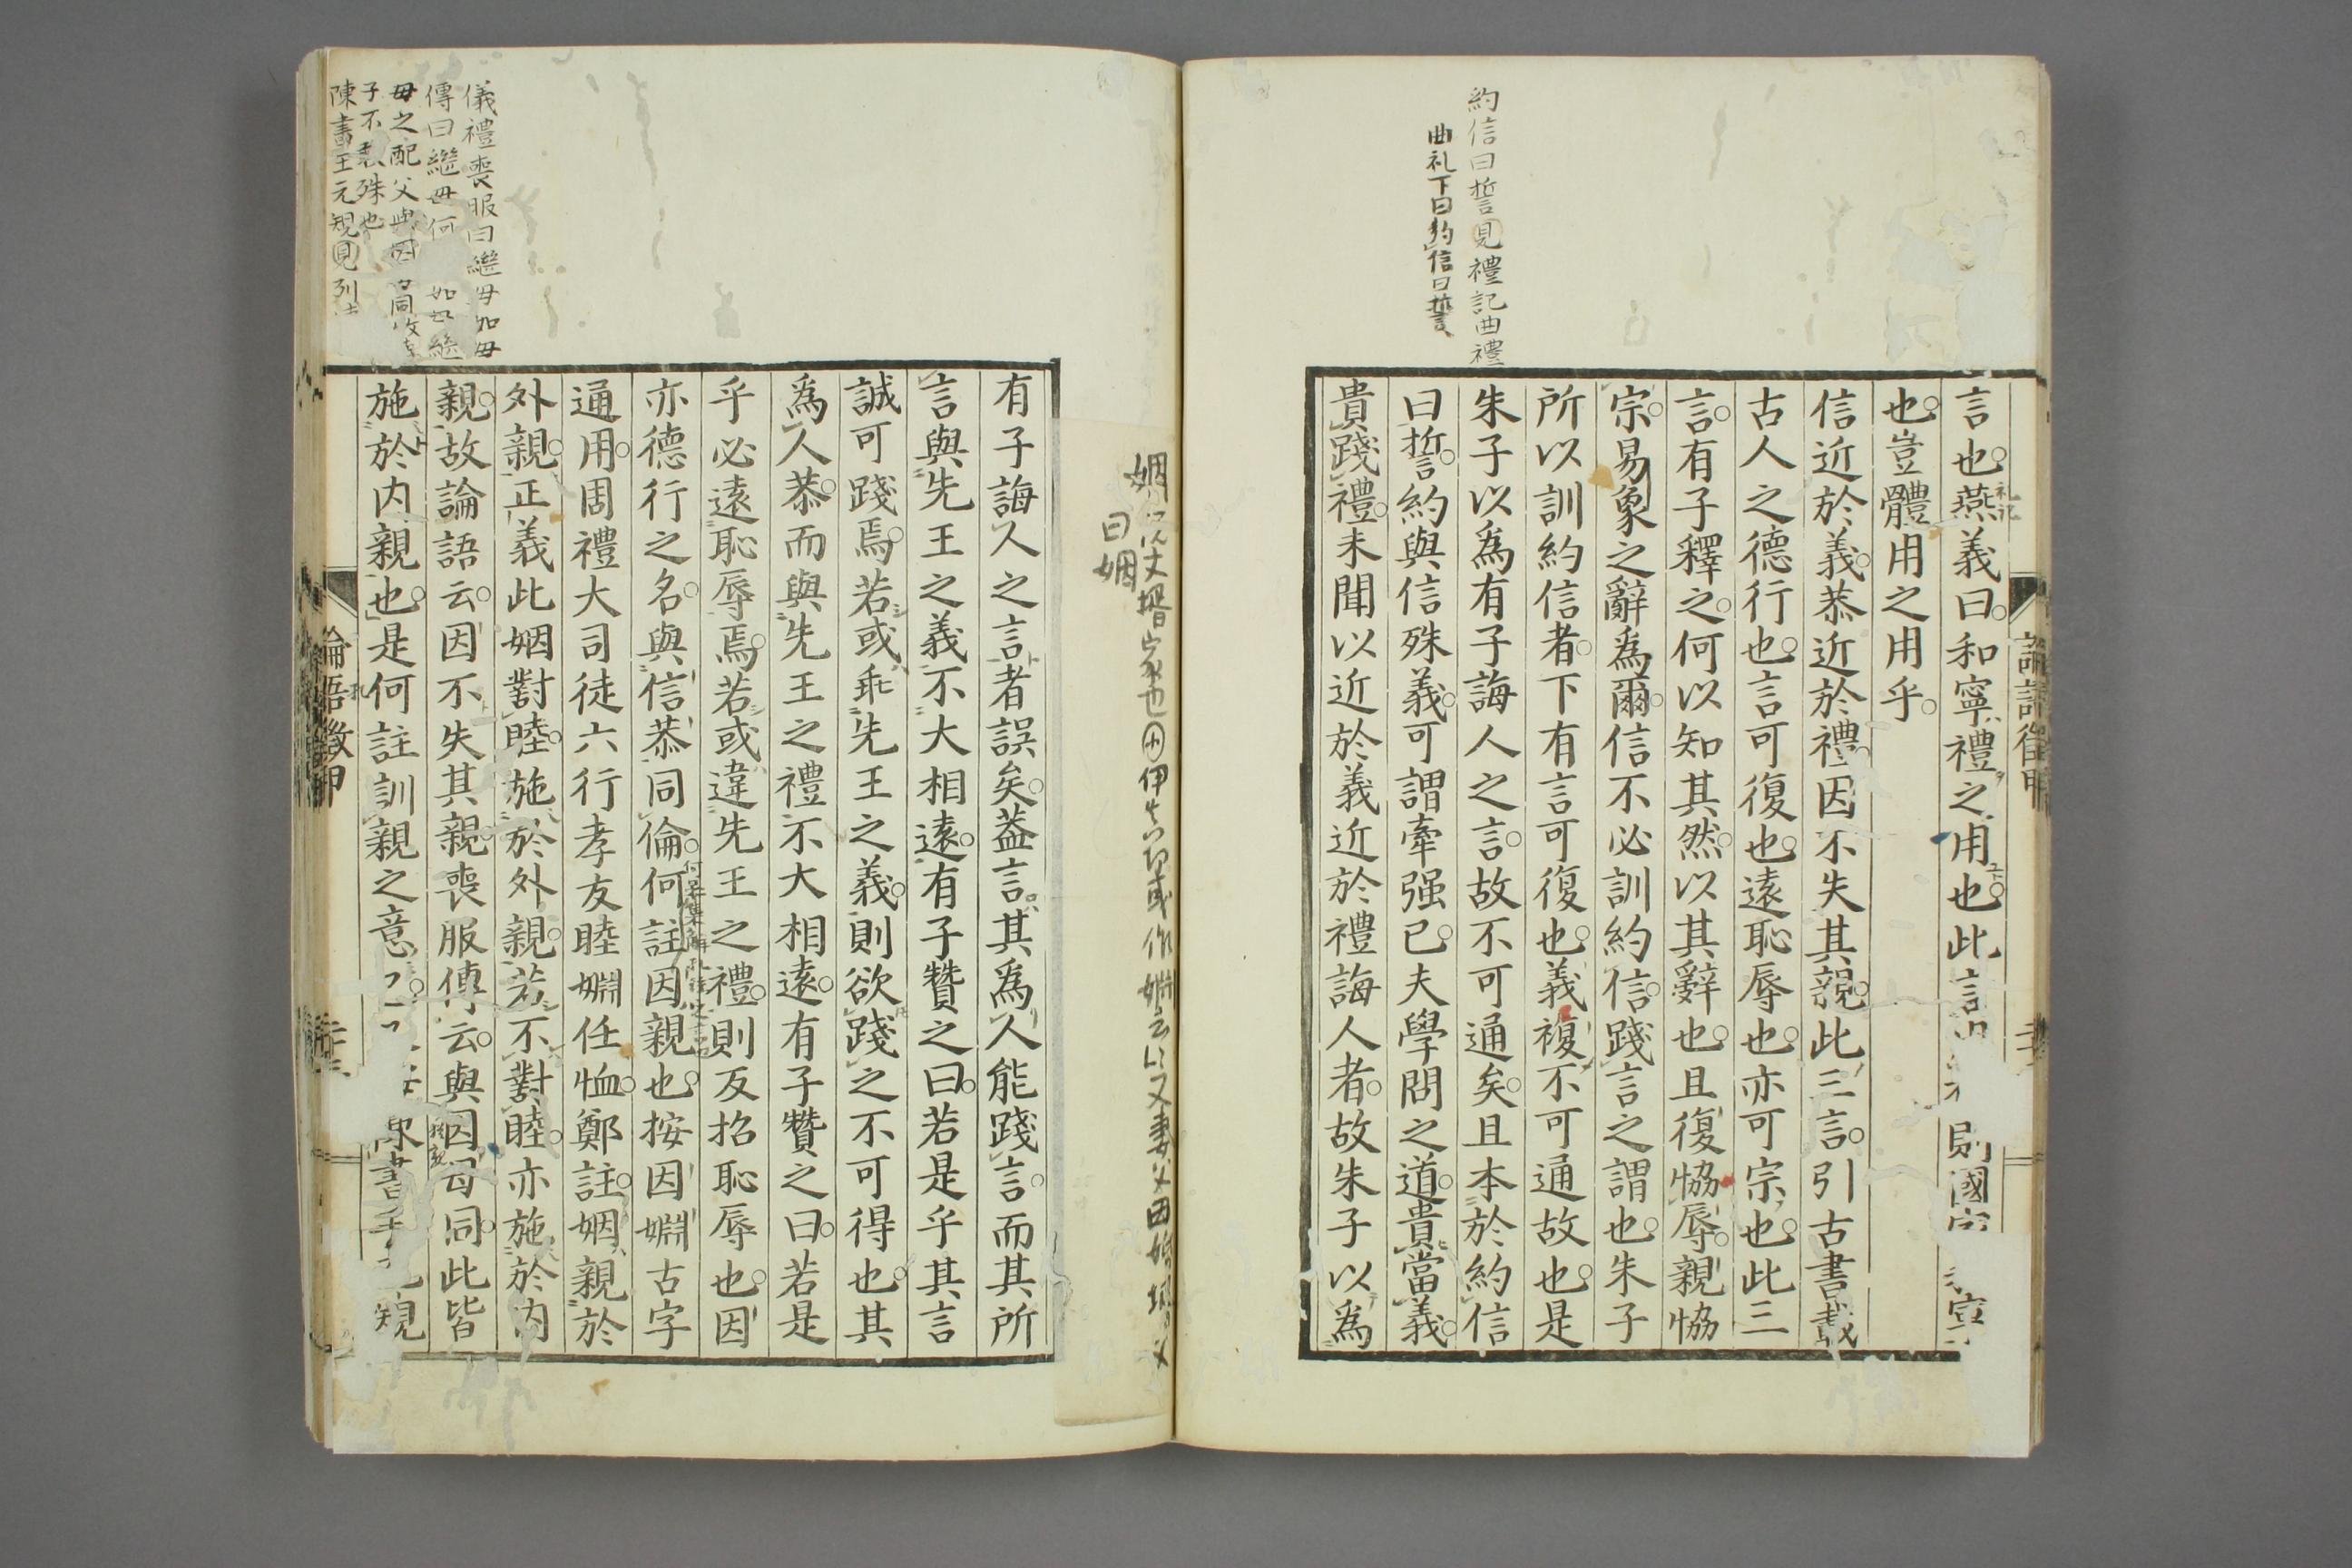 約信曰誓見禮記曲禮
曲礼下曰約信曰誓
言也燕義曰和寧禮之用也此言
則國
寧
也豈體用之用乎
信近於義恭近於禮因不失其親此三言引古書載
古人之德行也言可復也遠恥辱也亦可宗也此三
言有子釋之何以知其然以其辭也且復恊辱親恊
宗易象之辭爲爾信不必訓約信踐言之謂也朱子
所以訓約信者下有言可復也義複不可通故也是
朱子以爲有子誨人之言故不可通矣且本於約信
曰誓約與信殊義可謂牽强已夫學問之道貴當義
貴踐禮未聞以近於義近於禮誨人者故朱子以爲
曰姻
有子誨人之言者誤矣葢言其爲人能踐言而其所
言與先王之義不大相遠有子贊之曰若是乎其言
誠可踐焉若或乖先王之義則欲踐之不可得也其
爲人恭而與先王之禮不大相遠有子贊之曰若是
乎必遠恥辱焉若或違先王之禮則反招恥辱也因
亦德行之名與信恭同倫何註因親也按因婣古字
通用周禮大司徒六行孝友睦婣任恤鄭註姻親於
外親正義此姻對睦施於外親若不對睦亦施於内
親故論語云因不失其親喪服傳云與因母同此皆
施於内親也是何註訓親之意
陳書
規
儀禮喪服曰繼母如母
傳曰繼母何如母繼
母之配父與因母同故孝
子不殊也
陳書王元規見列
論語徵甲